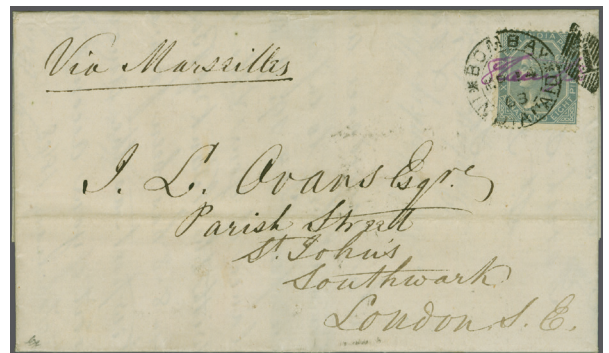 Via Marseilles
BOMBAY
INDIA PAID
J. L. Ovans Esqre
Parish Street
St. John's
Southwark
London S. E.